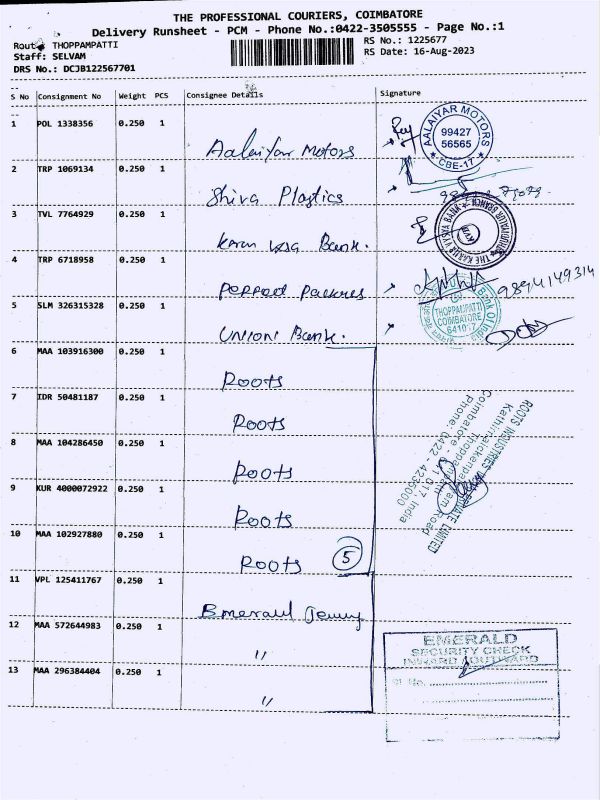 THE PROFESSIONAL COURIERS, COIMBATORE
Delivery Runsheet - PCM - Phone No.:0422-3505555 - Page No.:1
Route: THOPPAMPATTI
RS No.: 1225677
Staff: SELVAM
RS Date: 16-Aug-2023
DRS No.: DCJB122567701
S No Consignment No Weight PCS Consignee Details Signature
1 POL 1338356 0.250 1 Aalaiyar Motors
AALAIYAR MOTORS
99427
56565
CBE-17
2 TRP 1069134 0.250 1 Shiva Plastics
3 TVL 7764929 0.250 1 Karur Vysa Bank.
THE KARUR VYSYA BANK
KVB
4 TRP 6718958 0.250 1 perfect packres
9894149314
5 SLM 326315328 0.250 1 Union Bank.
Bank Of India
THOPPAMPATTI
COIMBATORE
641017
6 MAA 103916300 0.250 1 Roots
7 IDR 50481187 0.250 1 Roots
8 MAA 104286450 0.250 1 Roots
9 KUR 4000072922 0.250 1 Roots
10 MAA 102927880 0.250 1 Roots 5
ROOTS INDUSTRIES PRIVATE LIMITED
Coimbatore - 641 017, India
Phone: 0422 - 4235000
11 VPL 125411767 0.250 1 Emerald Jewny
12 MAA 572644983 0.250 1 "
13 MAA 296384404 0.250 1 "
EMERALD
SECURITY CHECK
INWARD / OUTWARD
Sl. No.